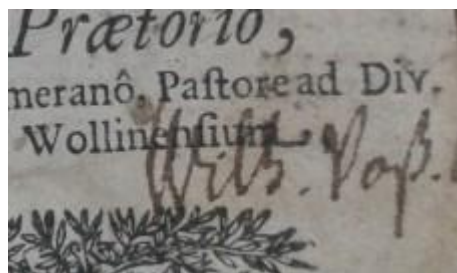 Prætorio,
meranô, Paſtore ad Div.
Wollinenſium
Wilh. Voß.